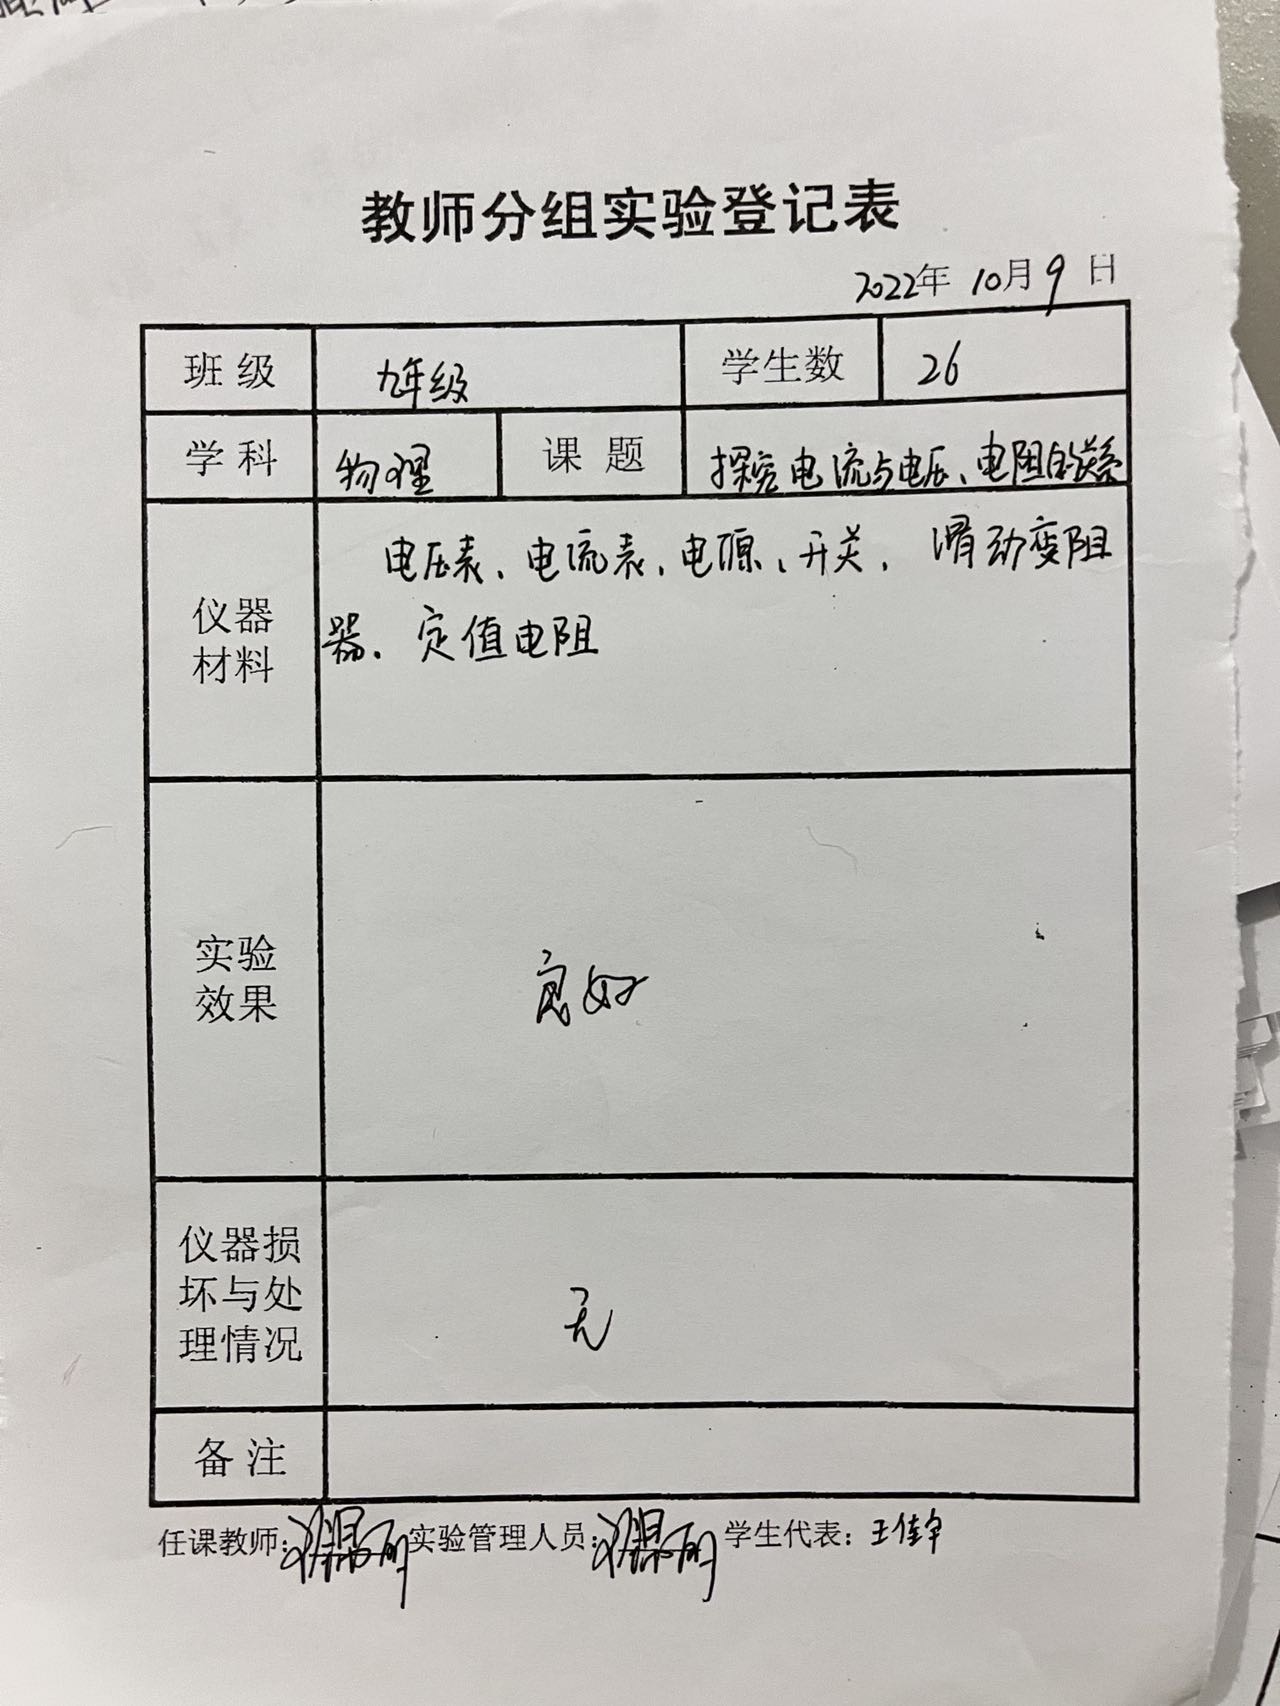 教师分组实验登记表
2022年 10月9日
班级 九年级 学生数 26
学科 物理 课题 探究电流与电压、电阻的关系
仪器材料 电压表、电流表、电源、开关、滑动变阻
器、定值电阻
实验效果 良好
仪器损坏与处理情况 无
备注
任课教师: 实验管理人员: 学生代表: 王佳宇